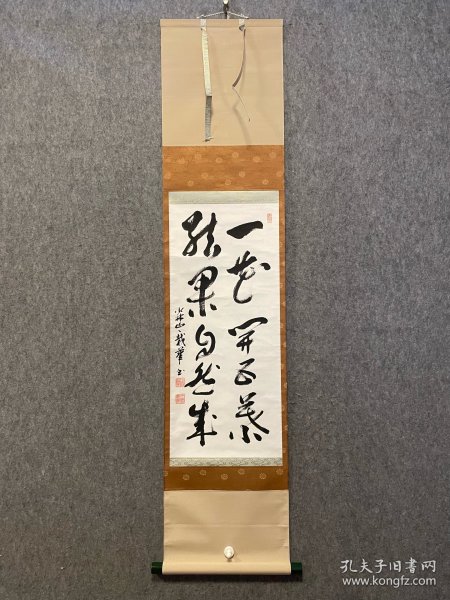 一花開五葉
結果自然成
孔夫子旧书网
www.kongfz.com